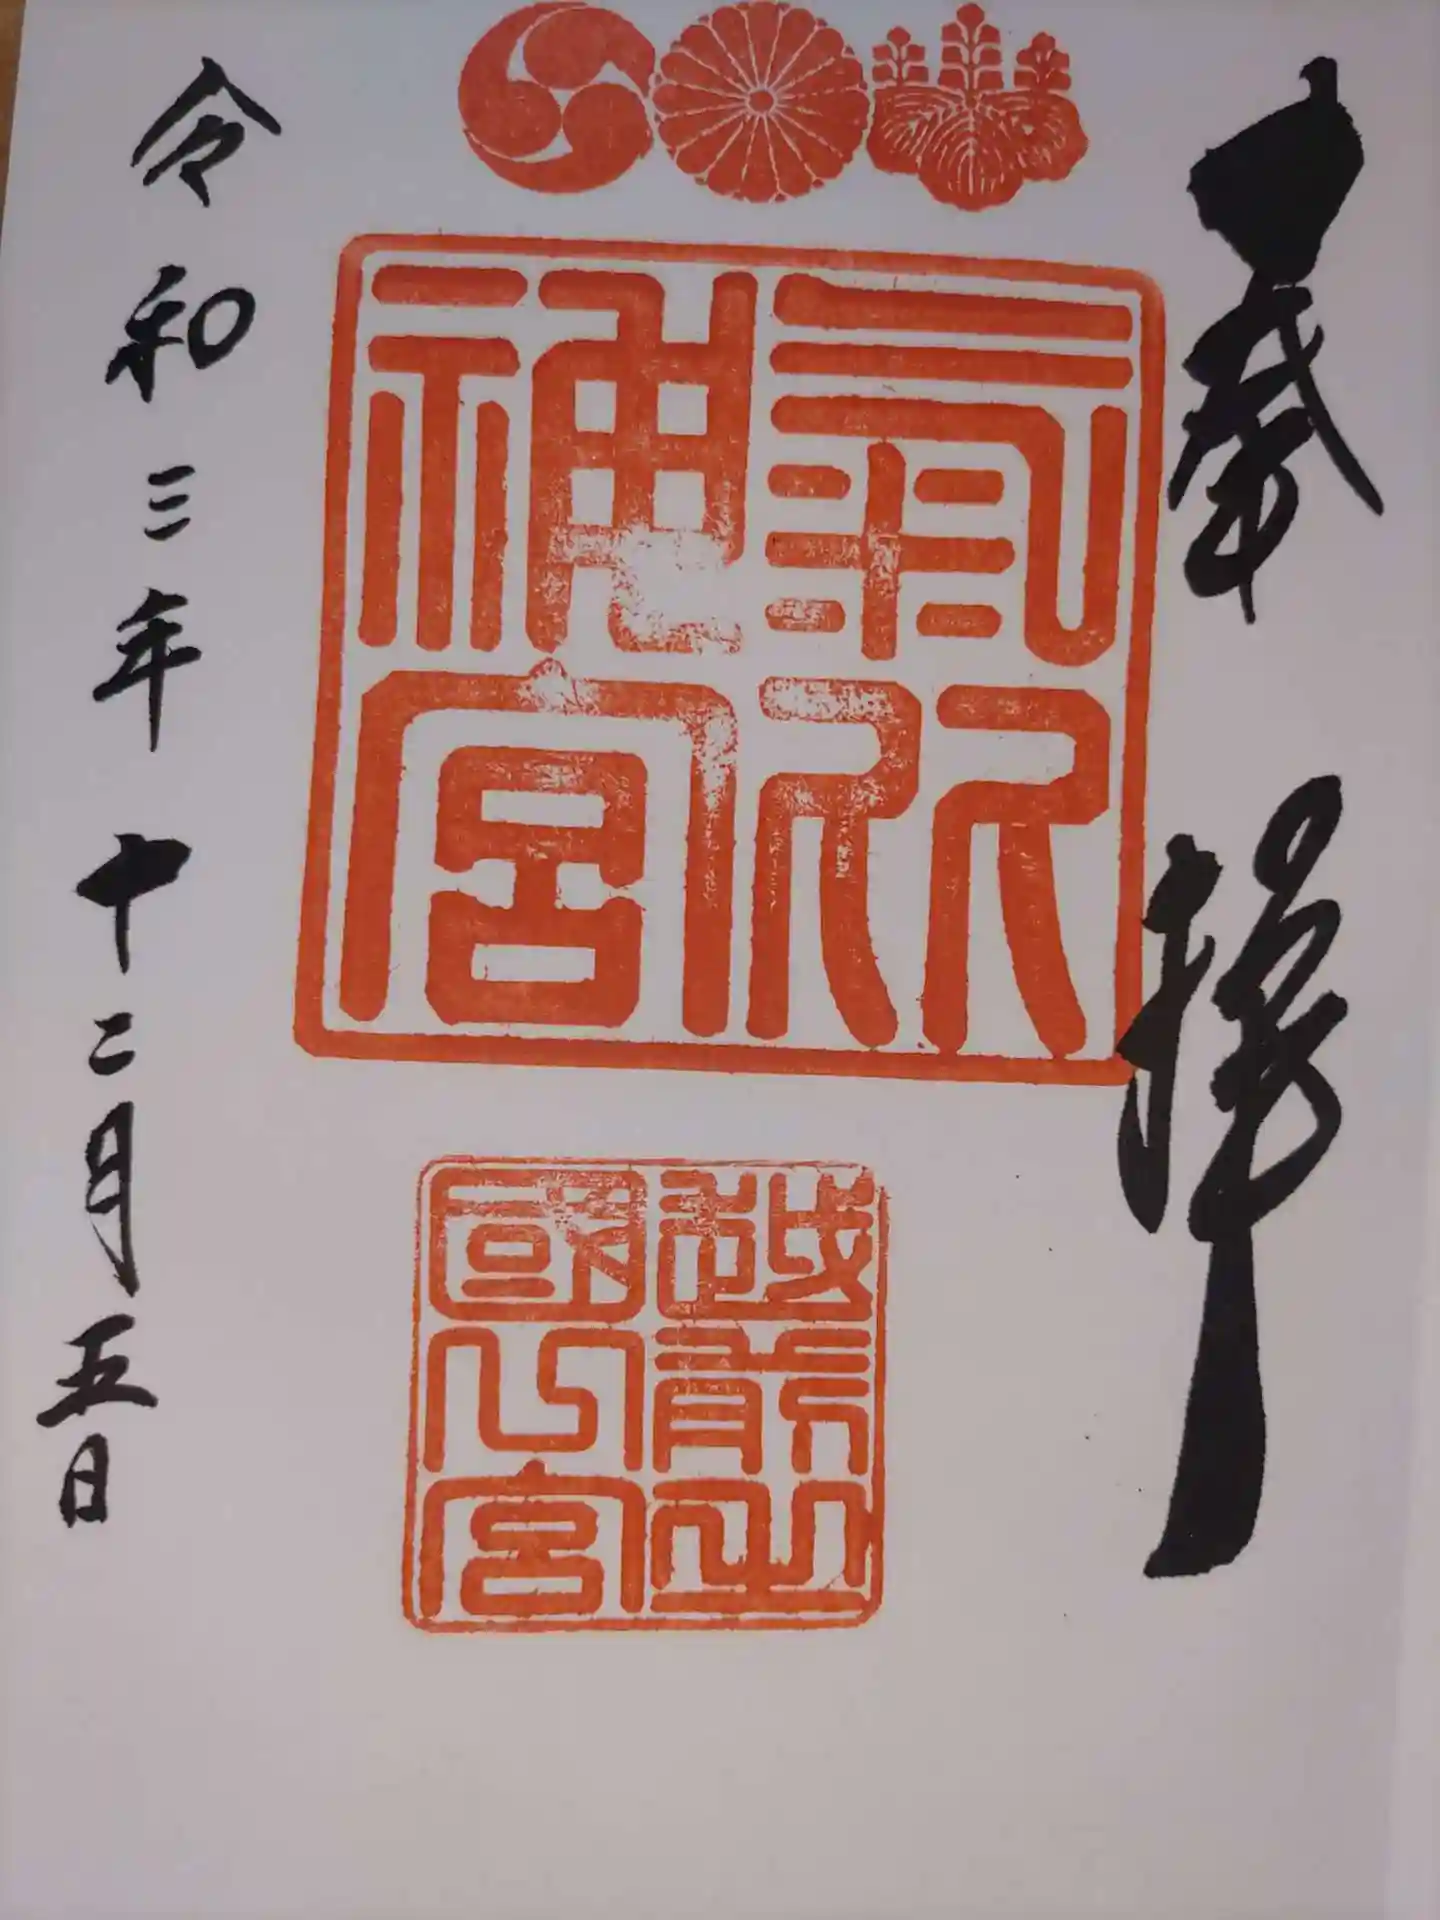 奉拝
氣比
神宮
越前一
國一宮
令和三年十二月五日